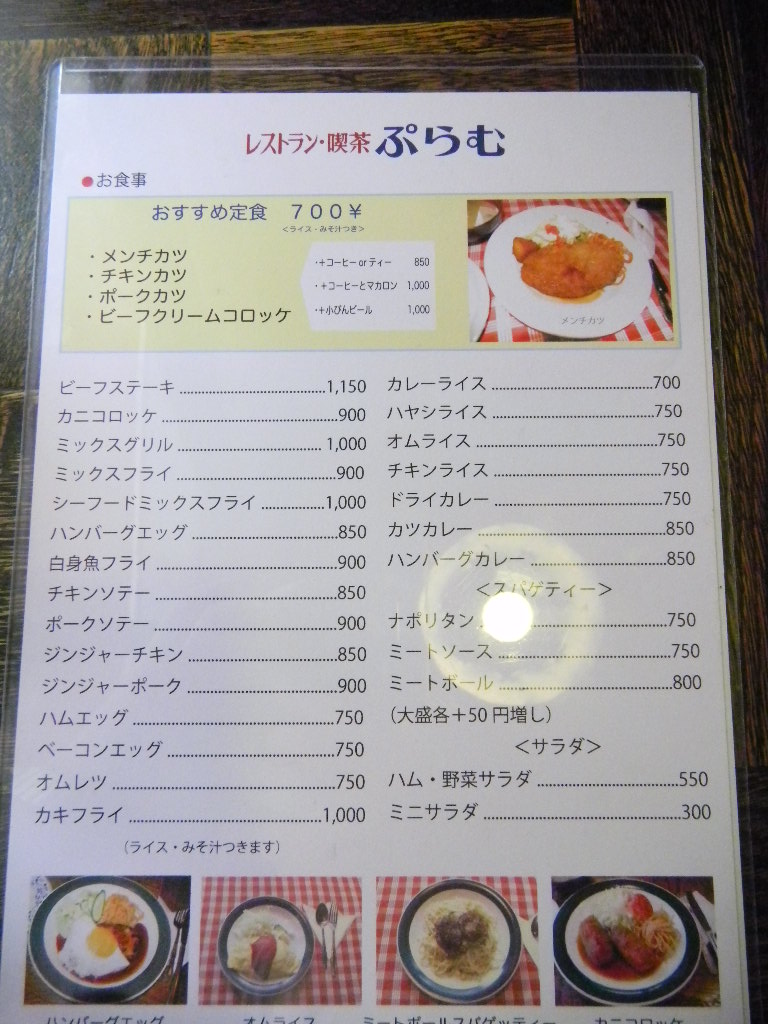 レストラン・喫茶 ぷらむ
●お食事
おすすめ定食 700￥
＜ライス・みそ汁つき＞
・メンチカツ
・チキンカツ
・ポークカツ
・ビーフクリームコロッケ
・＋コーヒー or ティー 850
・＋コーヒーとマカロン 1,000
・＋小びんビール 1,000
メンチカツ
ビーフステーキ 1,150
カニコロッケ 900
ミックスグリル 1,000
ミックスフライ 900
シーフードミックスフライ 1,000
ハンバーグエッグ 850
白身魚フライ 900
チキンソテー 850
ポークソテー 900
ジンジャーチキン 850
ジンジャーポーク 900
ハムエッグ 750
ベーコンエッグ 750
オムレツ 750
カキフライ 1,000
（ライス・みそ汁つきます）
カレーライス 700
ハヤシライス 750
オムライス 750
チキンライス 750
ドライカレー 750
カツカレー 850
ハンバーグカレー 850
＜スパゲティー＞
ナポリタン 750
ミートソース 750
ミートボール 800
（大盛各＋50 円増し）
＜サラダ＞
ハム・野菜サラダ 550
ミニサラダ 300
ハンバーグエッグ
オムライス
ミートボールスパゲッティー
カニコロッケ